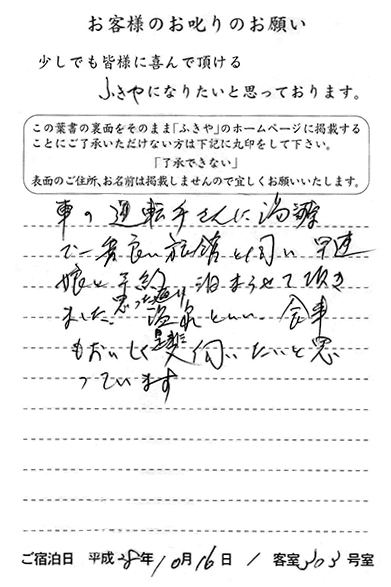 お客様のお叱りのお願い
少しでも皆様に喜んで頂ける
ふきやになりたいと思っております。
この葉書の裏面をそのまま「ふきや」のホームページに掲載する
ことにご了承いただけない方は下記に丸印をして下さい。
「了承できない」
表面のご住所、お名前は掲載しませんので宜しくお願いいたします。
車の運転手さんに湯河原
で一番良い旅館と伺い早速
娘と予約、泊まらせて頂き
ました。思った通り温泉といい、食事
もおいしく是非又伺いたいと思
っています
ご宿泊日 平成28年10月16日 / 客室303号室